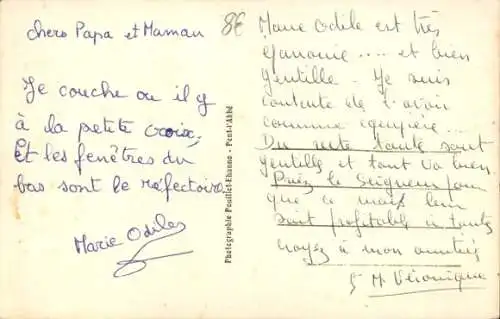 chers Papa et Maman
Je couche ou il y
à la petite croix,
Et les fenêtres du
bas sont le réfectoire
Marie Odile
Photographie Pouillet-Ehanno - Pont-l'Abbé
8€
Marie Odile est très
.... et bien
gentille. Je suis
contente de l'avoir
comme équipière...
Du reste toutes sont
gentilles et tout va bien
Priez le Seigneur pour
que ce mois leur
soit profitable à toutes
Croyez à mon amitié
Sr M. Véronique